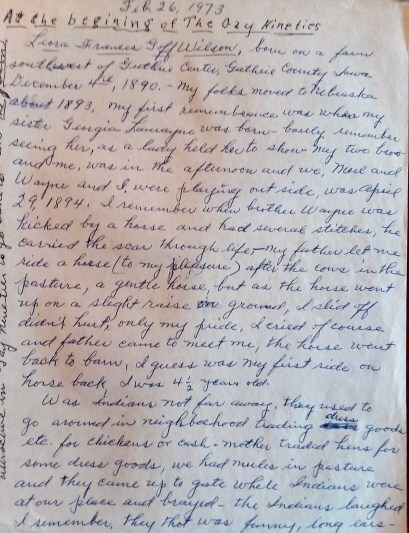 Feb. 26, 1973
At the begining of The Gay Ninetics
Leora Frances Goff Wilson, born on a farm
southwest of Guthrie Center, Guthrie County Iowa
December 4th, 1890. - My folks moved to Nebraska
about 1893, my first remembrance was when my
sister Georgia Laurayne was born - barely remember
seeing her, as a lady held her to show my two bros
and me, was in the afternoon and we, Merl and
Wayne and I, were playing out side, was April
29, 1894. I remember when brother Wayne was
kicked by a horse and had several stitches, he
carried the scar through life, - My father let me
ride a horse (to my pleasure) after the cows in the
pasture, a gentle horse, but as the horse went
up on a slight raise ground, I slid off
didn't hurt, only my pride, I cried of course
and father came to meet me, the horse went
back to barn, I guess was my first ride on
horse back, I was 4 1/2 years old.
Was Indians not far away, they used to
go around in neighborhood trading dress goods
etc. for chickens or cash - mother traded hens for
some dress goods, we had mules in pasture
and they came up to gate while Indians were
at our place and brayed - the Indians laughed
I remember, they thot was funny, long ears -